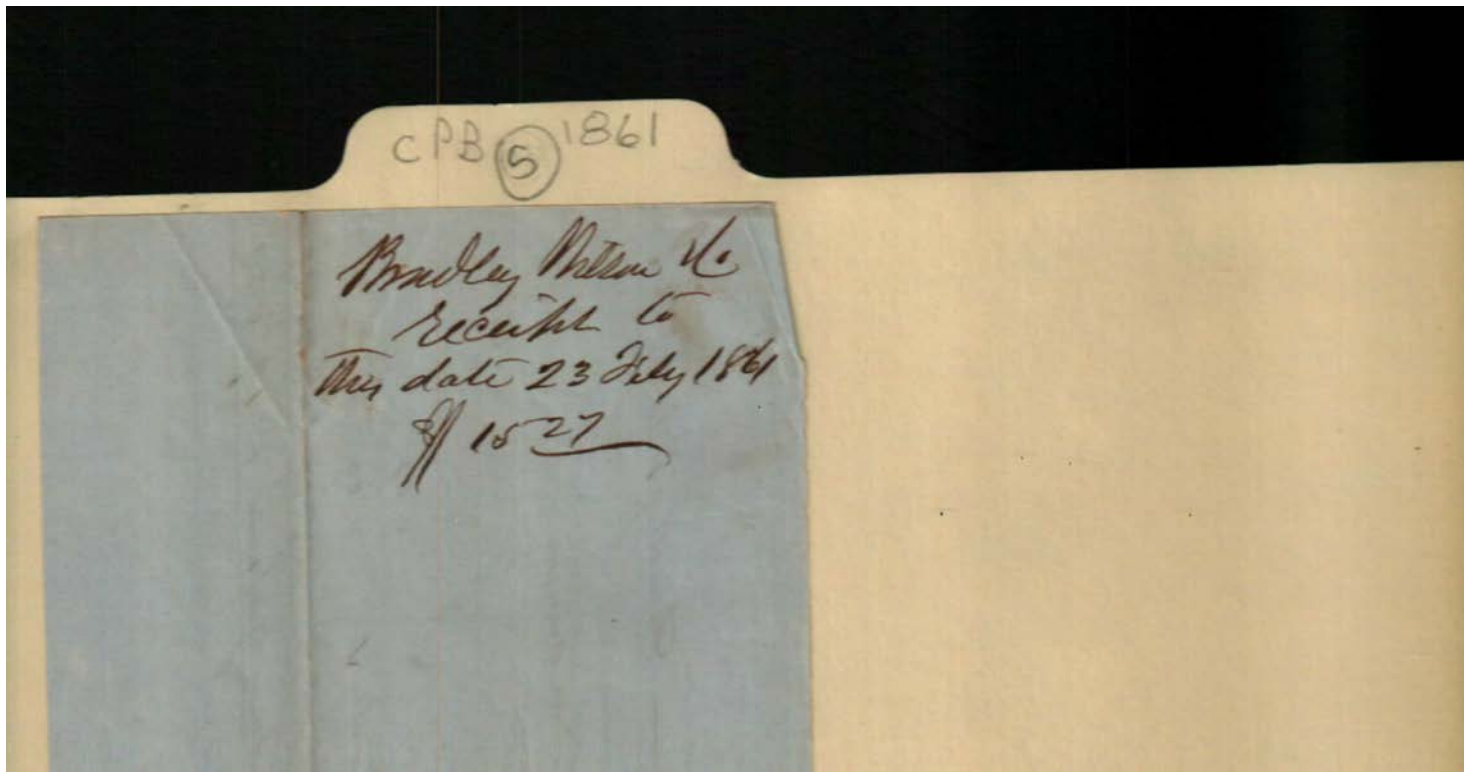 CPB 5 1861
Bradley Wilson & Co
receipt to
this date 23 July 1861
$ 15 27